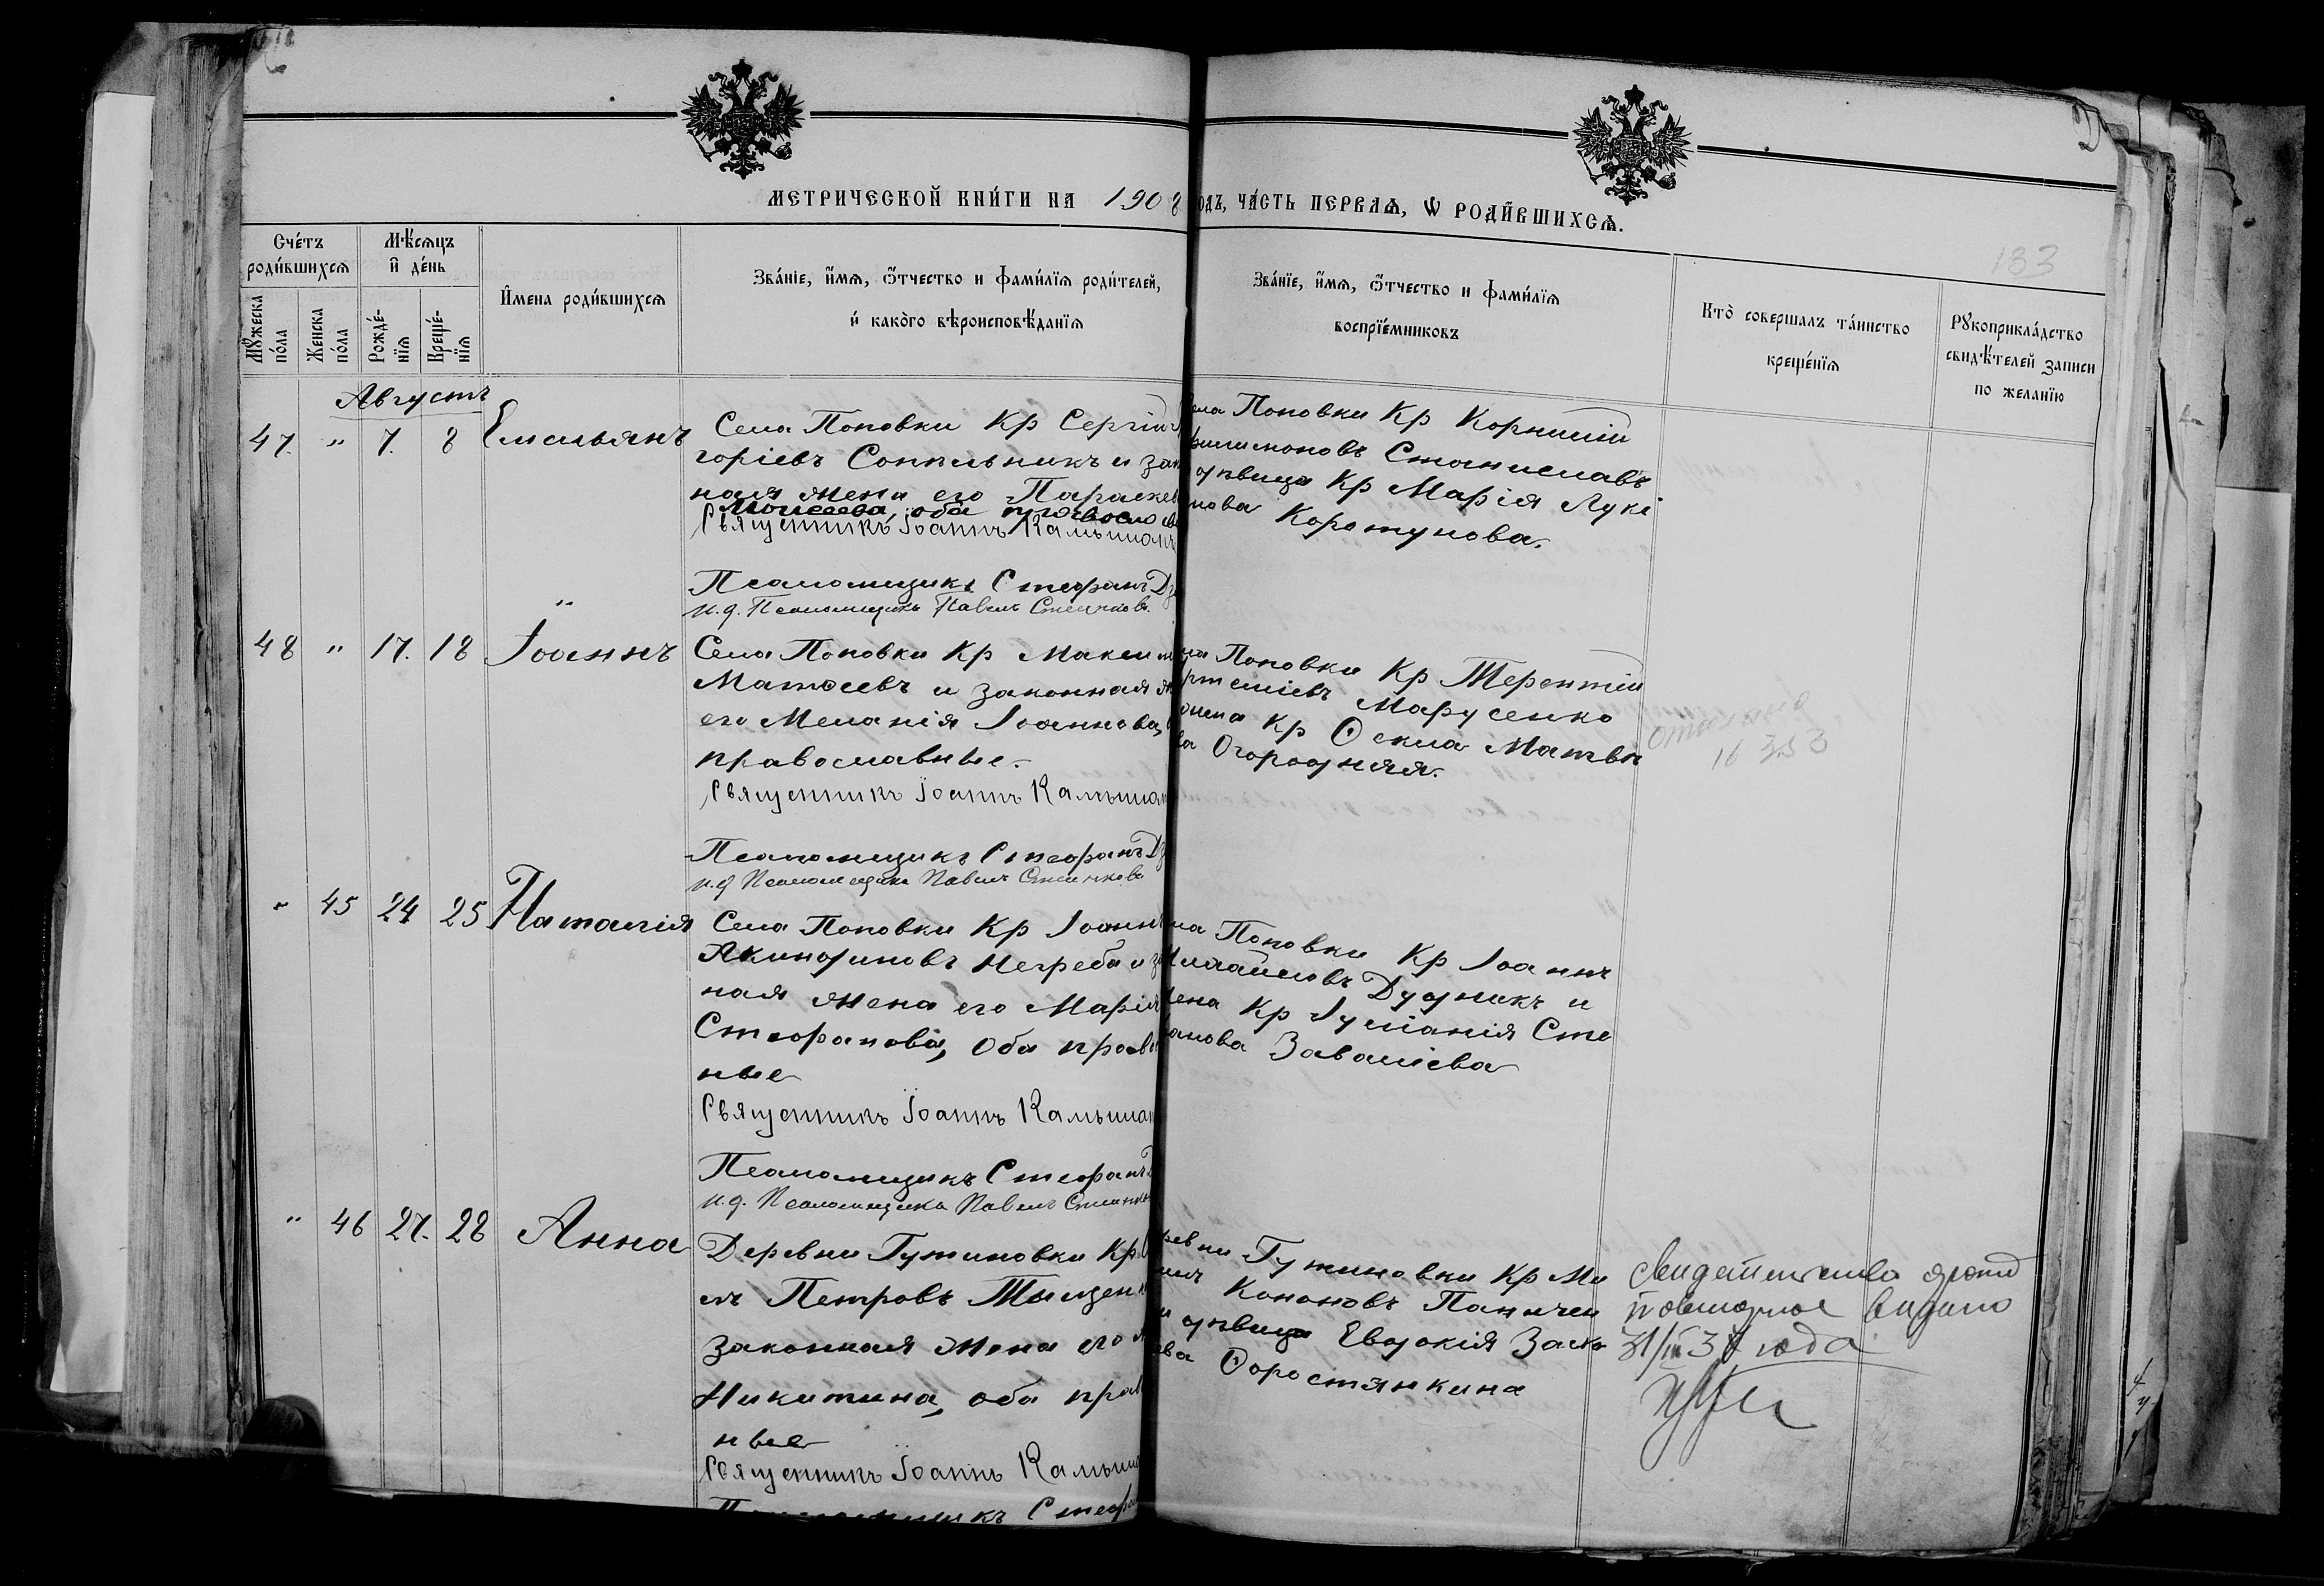 МЕТРИЧЕСКОЙ КНИ́ГИ НА 1908
ОДЪ, ЧА́СТЬ ПЕРВАѦ, Ѡ РОДИ́ВШИХСѦ.
133
Сче́тъ роди́вшихсѧ
Мꙋ́жеска по́ла
Же́нска по́ла
Мѣ́сѧцъ и҆ де́нь
Рожде́-нїѧ
Креще́-нїѧ
И҆мена роди́вшихсѧ
Зва́нїе, и҆́мѧ, ѻ҆́тчество и фами́лїѧ роди́телей,
и҆ како́го вѣроисповѣ́данїѧ
Зва́нїе, и҆́мѧ, ѻ҆́тчество и фами́лїѧ
воспрїе́мниковъ
Кто̀ соверша́лъ та́инство
креще́нїѧ
Рꙋкоприкла́дство
свидѣ́телей записи
по жела́нїю
Августъ
47. " 7. 8 Емельянъ
Села Поповки Кр Сергій
горіевъ Сопильникъ и зак
ная жена его Параскев
Моисеева, оба православ
Священникъ Іоаннъ Камышан
Псаломщикъ Стефанъ Дз
и.д. Псаломщика Павелъ
ела Поповки Кр Корнилій
Филимоновъ Станиславъ
дѣвица Кр Марія Лукі
нова Коротунова.
48 " 17. 18 Іоаннъ
Села Поповки Кр Максим
Матѳеевъ и законная ж
его Меланія Іоаннова,
православные.
Священникъ Іоаннъ Камышан
Псаломщикъ Стефанъ Дз
и.д Псаломщика Павелъ
ла Поповки Кр Терентій
ртеміевъ Марусенко
жена Кр Ѳекла Матвѣ
ва Огородняя.
" 45 24 25 Наталія
Села Поповки Кр Іоаннъ
Акиндиновъ Негреба и з
ная жена его Марія
Стефанова, Оба правос
ные
Священникъ Іоаннъ Камышан
Псаломщикъ Стефанъ
и.д. Псаломщика Павелъ
ла Поповки Кр Іоаннъ
Михайловъ Дудникъ и
жена Кр Іуліанія Сте
анова Завалієва
" 46 27. 28 Анна
Деревни Гутиновки Кр
лъ Петровъ Тыщен
законная жена его
Никитина, оба прав
ные
Священникъ Іоаннъ Камыш
Псаломщикъ Стефа
ревни Гутиновки Кр Ми
илъ Кононовъ Паничен
и дѣвица Евдокія
ева Ѳоростянкина
повторное видано
года